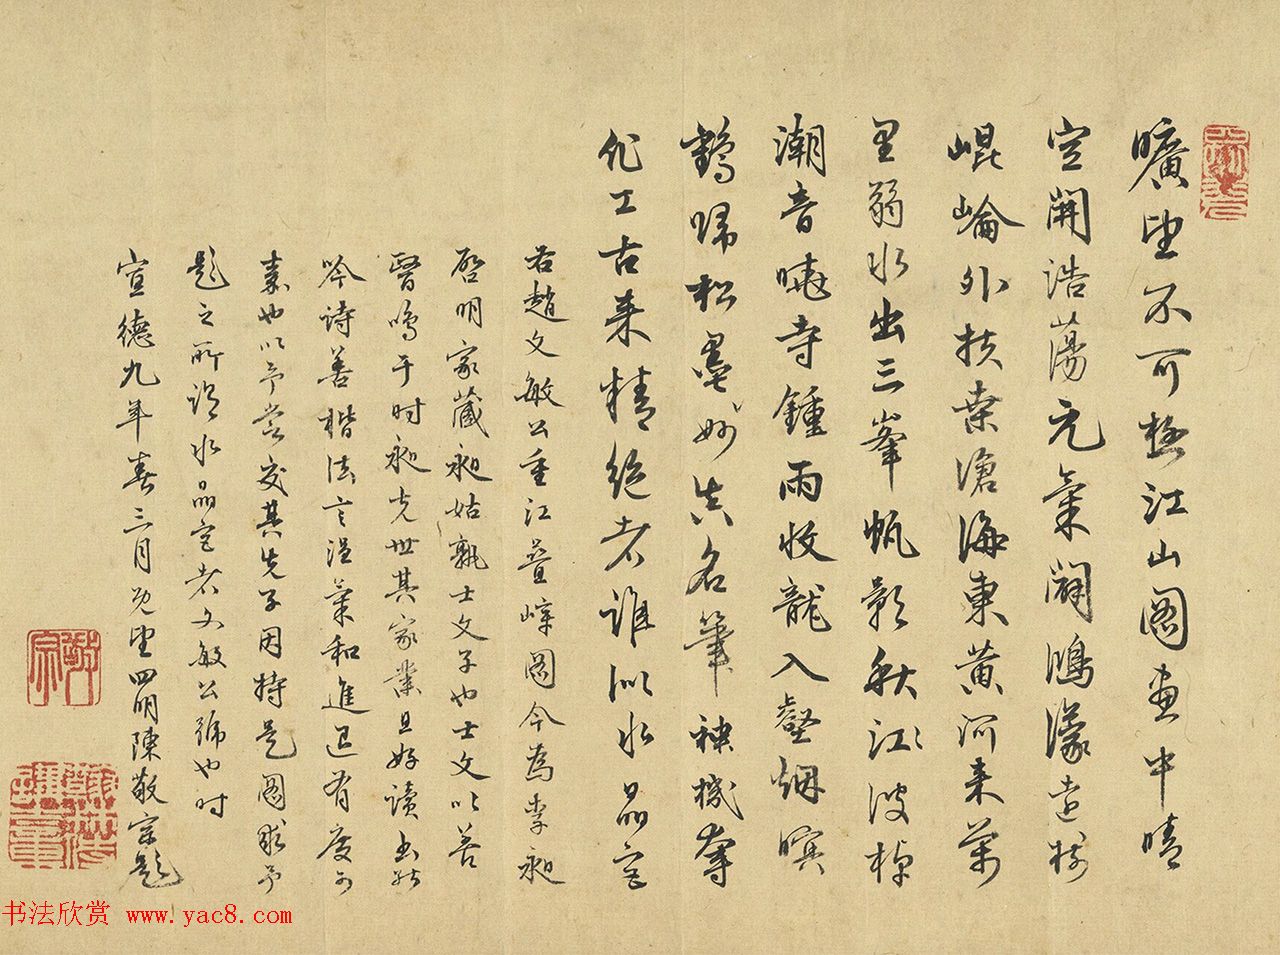 曠望不可極江山圖畫中晴
空開浩蕩元氣闢鴻濛遠樹
崐崘外扶桒滄海東黃河来萬
里弱水出三峯帆影秋江江波棹
潮音曉寺鍾雨收龍入壑烟暝
鶴歸松墨妙真名筆神機奪
化工古来精絶者誰似水晶宮
右趙文敏公重江疊嶂圖今為李昶
啓明家藏昶姑孰士文子也士文以善
醫鳴于时昶克世其家業且好讀書能
吟诗善楷法言温氣和進退有度可
嘉也以予嘗交其先子因持是圖求予
題之所謂水晶宮者文敏公號也时
宣德九年春三月既望四明陳敬宗題
敬宗
书法欣赏 www.yac8.com